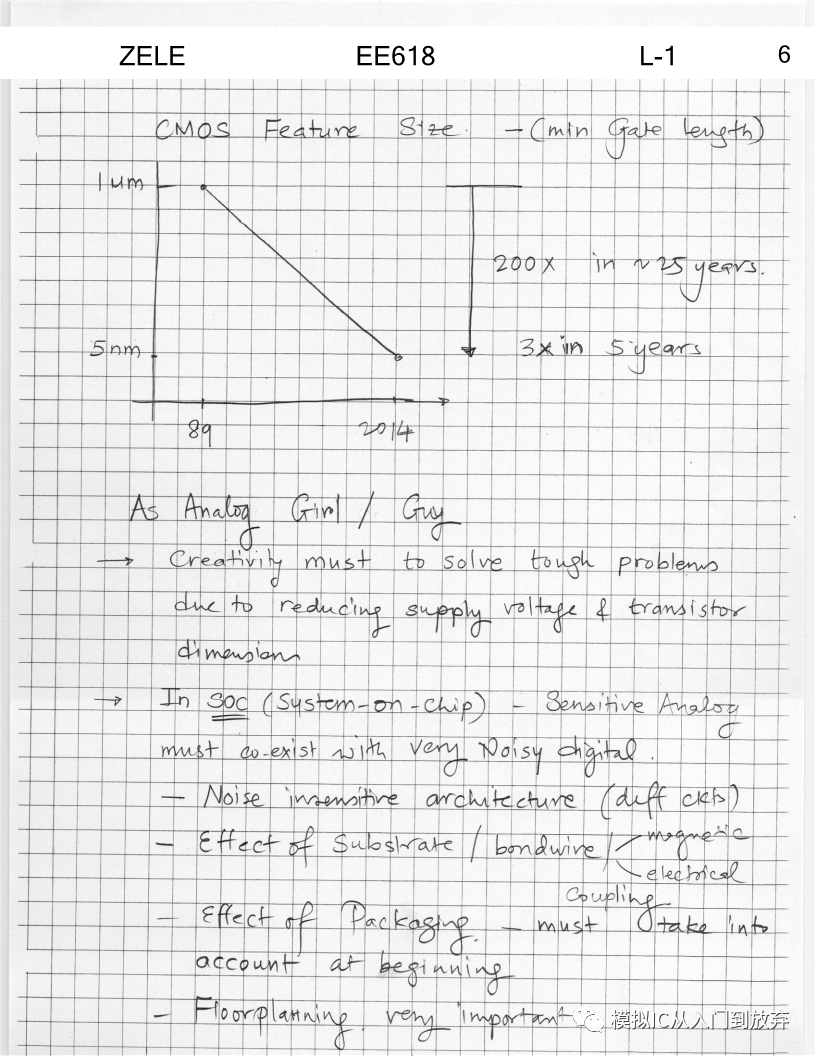 ZELE EE618 L-1 6
CMOS Feature Size. - (min Gate length)
1 um
200x in ~25 years.
5nm
3x in 5 years
89 2014
As Analog Girl / Guy
→ Creativity must to solve tough problems
due to reducing supply voltage & transistor
dimensions
→ In SOC (System-on-chip) - Sensitive Analog
must co-exist with very Noisy digital.
- Noise insensitive architecture (diff ckts)
- Effect of Substrate / bondwire / magnetic
electrical
Coupling
- Effect of Packaging. - must take into
account at beginning
- Floorplanning very important
模拟IC从入门到放弃